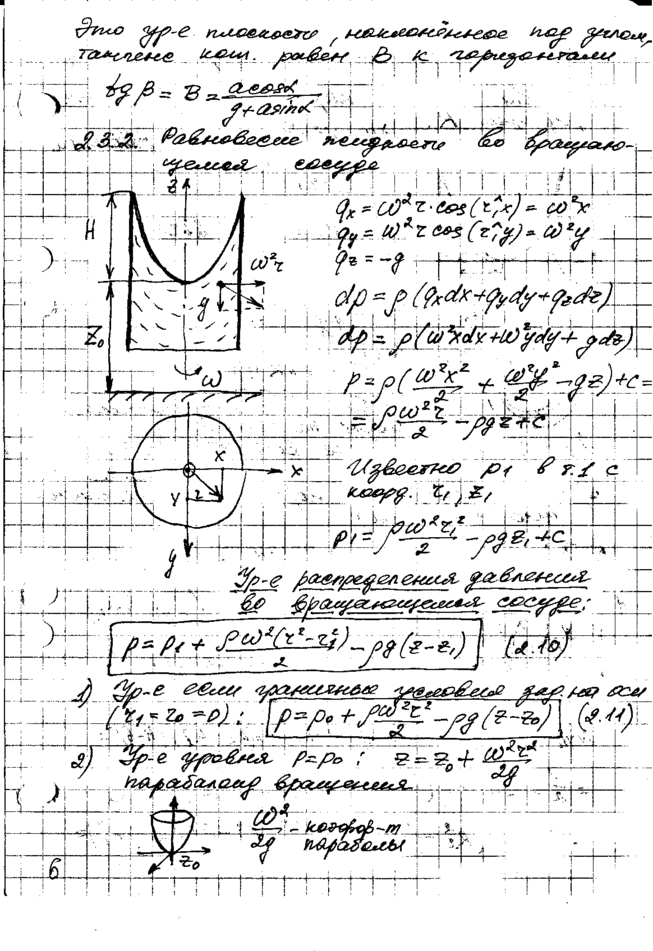 Это ур-е плоскости, наклонённое под углом,
тангенс кот. равен B к горизонтали
tg β = B = acosα / g+asinα
2.3.2. Равновесие жидкости во вращаю-
щемся сосуде
z
H
Z₀
g
ω²r
ω
qx = ω²r·cos(r,^x) = ω²x
qy = ω²r cos(r,^y) = ω²y
qz = -g
dp = ρ(qxdx+qydy+qzdz)
dp = ρ(ω²xdx+ω²ydy+gdz)
P = ρ(ω²x²/2 + ω²y²/2 - gz)+c =
= ρω²r/2 - ρgz+c
x
x
y
r
y
Известно p1 в т.1 с
коорд. r1, z1
p1 = ρω²r1²/2 - ρgz1+c
Ур-е распределения давления
во вращающемся сосуде:
p = p1 + ρω²(r²-r1²)/2 - ρg(z-z1) (2.10)
1) Ур-е если граничные условия зад. на оси
(r1=r0=0): p = p0 + ρω²r²/2 - ρg(z-z0) (2.11)
2) Ур-е уровня p=p0: z = z0 + ω²r²/2g
парабалоид вращения
z0
ω²/2g - коэффф-т
параболы
6